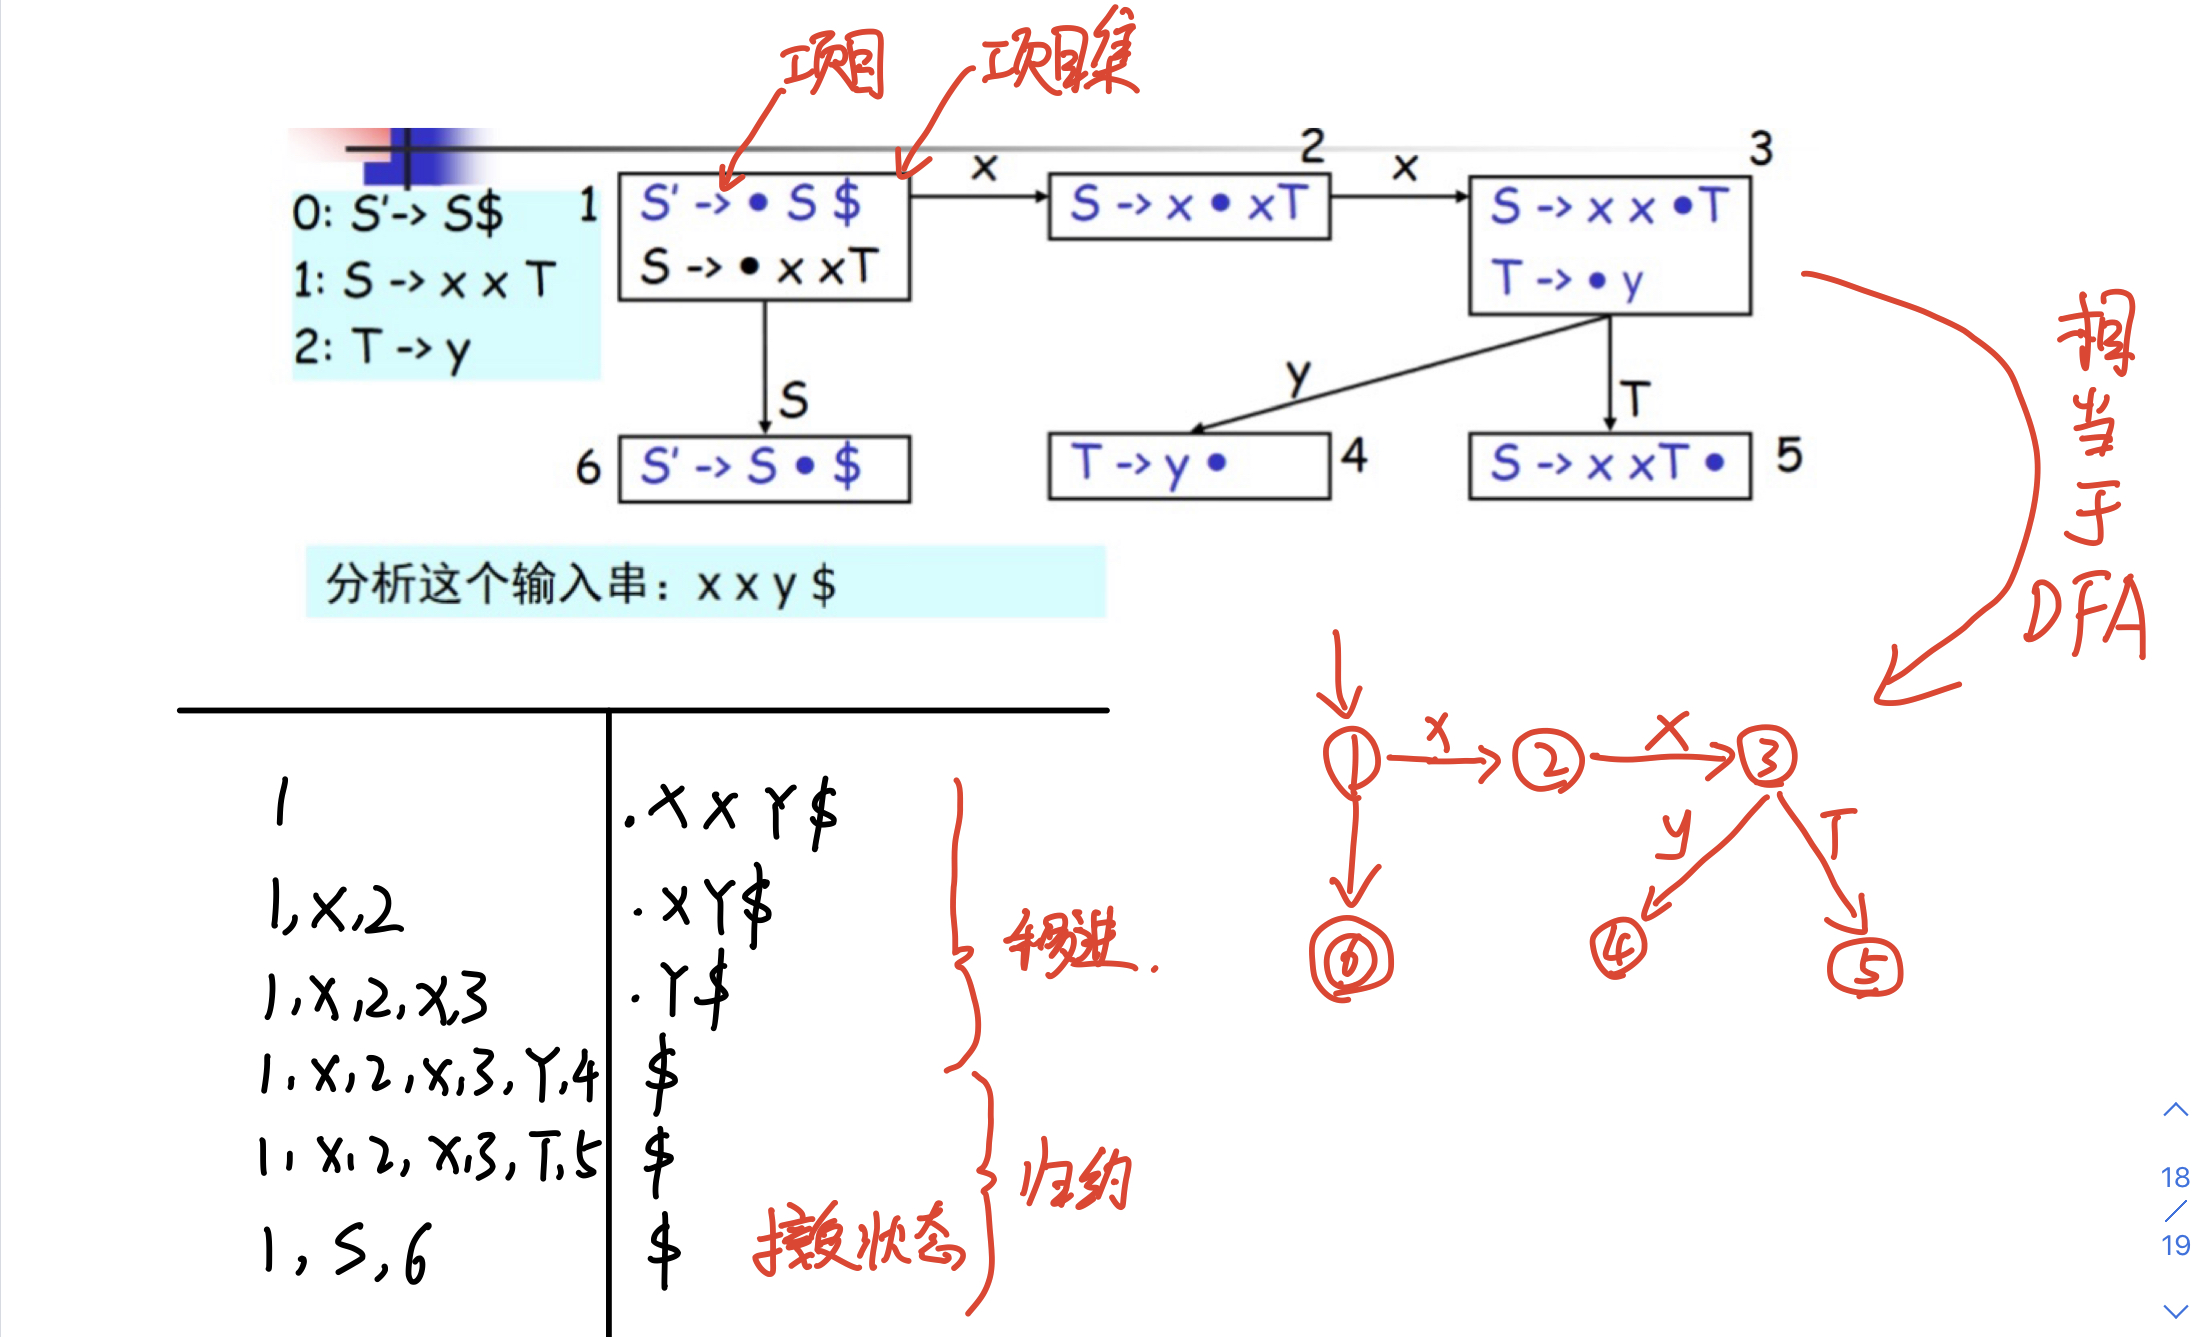 项目 项目集
0: S'-> S$
1: S -> x x T
2: T -> y
1
S' -> • S $
S -> • x xT
x
2
S -> x • xT
x
3
S -> x x •T
T -> • y
S
y
T
6
S' -> S • $
T -> y •
4
S -> x xT •
5
相当于DFA
分析这个输入串：x x y $
1 .X X Y $
1,X,2 .X Y $
1,X,2,X,3 .Y $
1,X,2,X,3,Y,4 $
1,X,2,X,3,T,5 $
1,S,6 $
移进.
归约
接受状态
1 x 2 X 3
y T
6 4 5
18
/
19